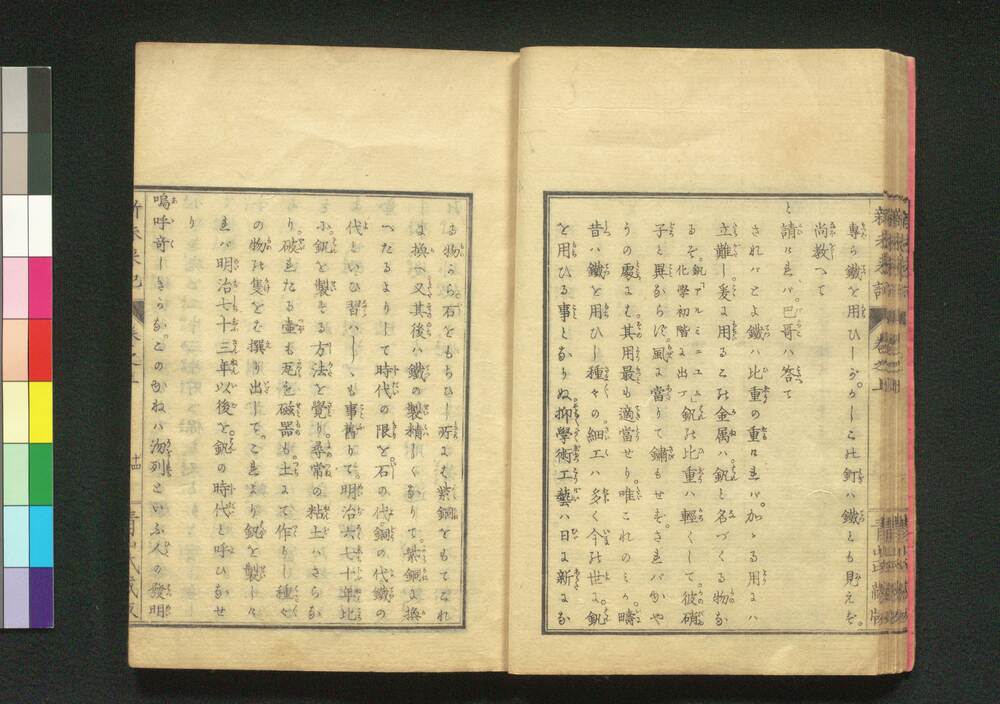 專ら鐵を用ひしが。かしこの釘ハ鐵とも見えず。
尚教へて
と請けれバ。巴哥ハ答て
されバとよ鐵ハ比重の重けれバ。加かる用にハ
立難し。爰に用ゐるこの金属ハ。釩と名づくる物な
るぞ。釩「アルミニユム」化學初階に出づ釩の比重ハ輕くして。彼硝
子と異ならず。風に當りて鏽もせず。されバかや
うの處にも。其用最も適當せり。唯これのミか疇
昔ハ鐵を用ひし種々の細工ハ多く今の世ハ。釩
を用ひる事となりぬ。抑學術工藝ハ日に新にな
る物から石をもちひし所にも紫銅をもてこれ
に換へ又其後ハ鐵の製精しくなりて。紫銅に換
へたるよりして時代の限を石の代。銅の代鐵の
代といひ習ハしゝも事舊りて。明治六七十年比
に。釩を製する方法を覺り。尋常の粘土ハさらな
り。破れたる壷も瓦を磁器も。土にて作りし種々
の物の隻をも撰り出して。これより釩を製しけ
れバ明治七十三年以後を。釩の時代と呼ひなせ
り
嗚呼奇しきかな。このかねハ汤列といふ人の發明
新未來記
卷之上
十四
青山氏藏版